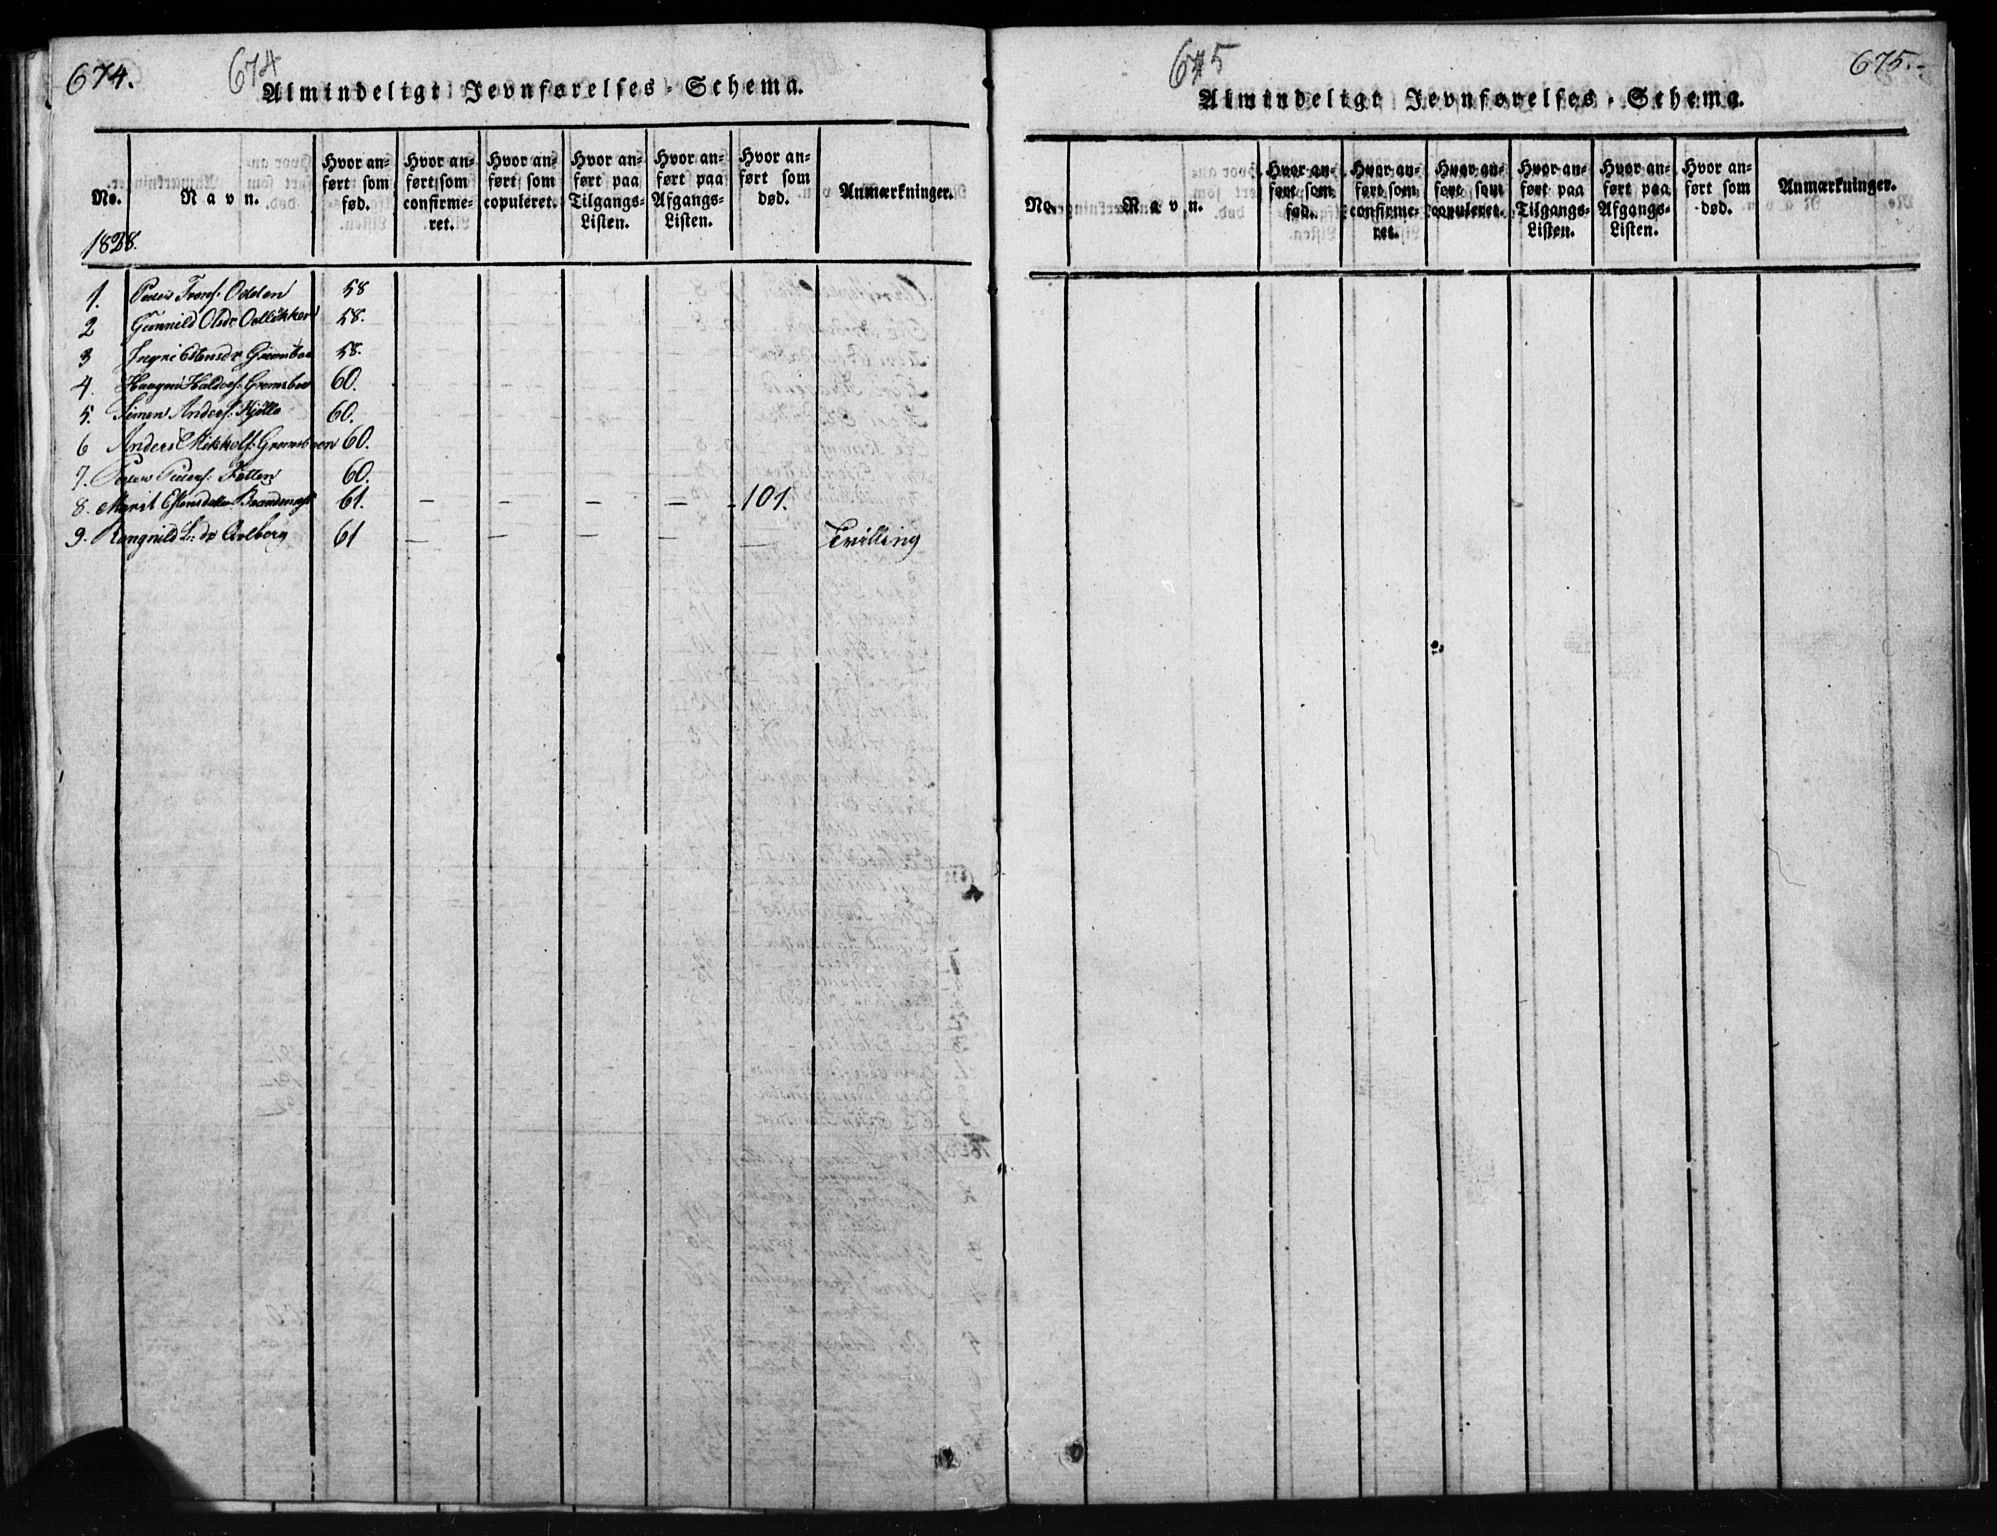 674.
674
Almindeligt Jevnførelses-Schema.
No.
Navn.
Hvor anført som fød.
Hvor anført som confirmeret.
Hvor anført som copuleret.
Hvor anført paa Tilgangs-Listen.
Hvor anført paa Afgangs-Listen.
Hvor anført som død.
Anmærkninger.
1828.
1. Peder Odden 58
2 Gunnild Olsdr 58.
3 58.
4. Haagen Haldors: Gremsboe 60.
5. Simen Anders: Kjølle 60.
6 Anders Mikkels: Gremsboen 60.
7. Peder Peders: 60.
8. Marit Estensdatter 61. – – – – – 101.
9. Rangnild 61 – – – – – Tvilling
675
675.
Almindeligt Jevnførelses-Schema.
No.
Navn.
Hvor anført som fød.
Hvor anført som confirmeret.
Hvor anført som copuleret.
Hvor anført paa Tilgangs-Listen.
Hvor anført paa Afgangs-Listen.
Hvor anført som død.
Anmærkninger.